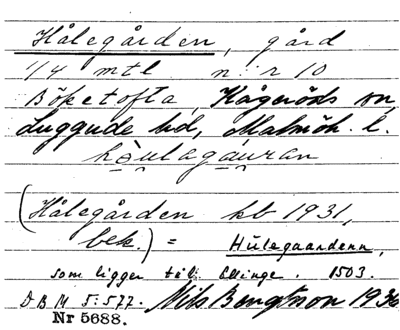 Hålegården, gård
1/4 mtl n:r 10
Böketofta, Kågeröds sn,
Luggude hd, Malmöh. l.
hòulagáuran
(Hålegården kb 1931,
bek.) = Hulegaardenn,
som ligger till Ellinge. 1503.
D B M 5:577. Nils Bengtsson 1936
Nr 5688.